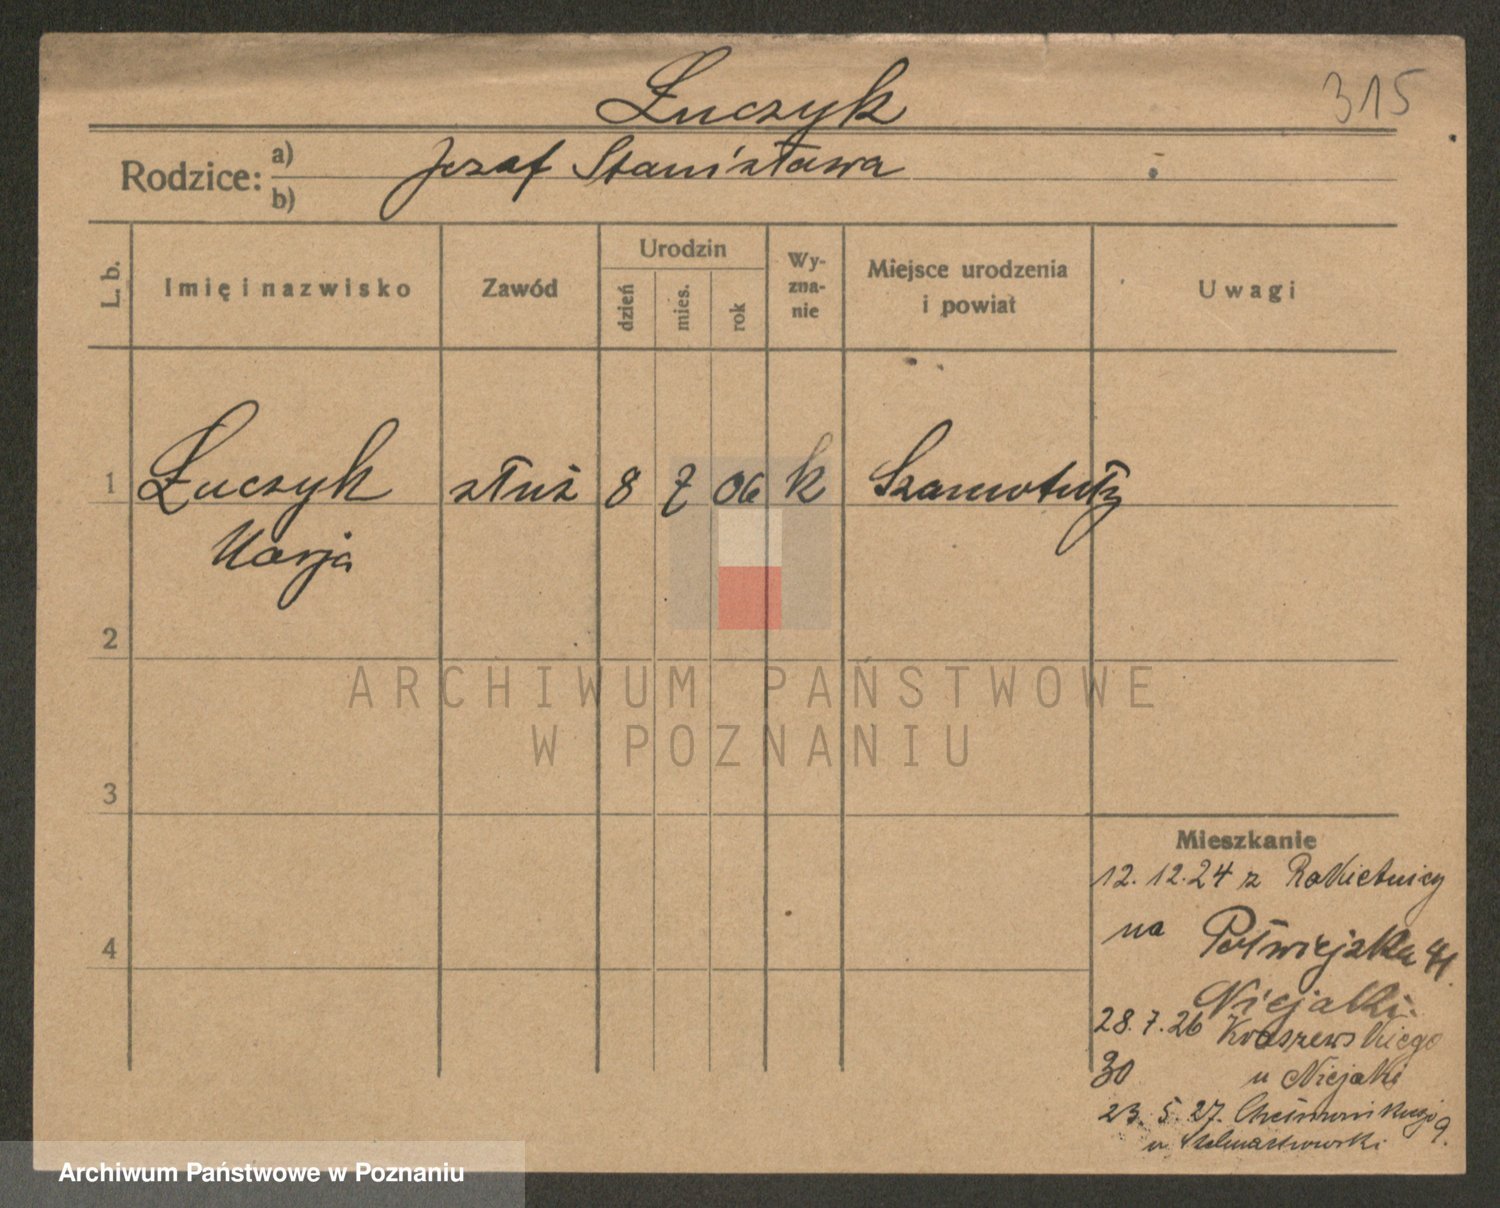 Łuczyk
315
Rodzice: a) b)
Jozef Stanisława
L. b.
Imię i nazwisko
Zawód
Urodzin
dzień
mies.
rok
Wy-
zna-
nie
Miejsce urodzenia
i powiat
Uwagi
1 Łuczyk służ 8 7 06 k Szamotuły
Marja
2
3
4
ARCHIWUM PAŃSTWOWE
W POZNANIU
Mieszkanie
12.12.24 z Rokietnicy
na Półwiejska 41.
28.7.26 Kraszewskiego
30 u
23.5.27. 9.
u
Archiwum Państwowe w Poznaniu